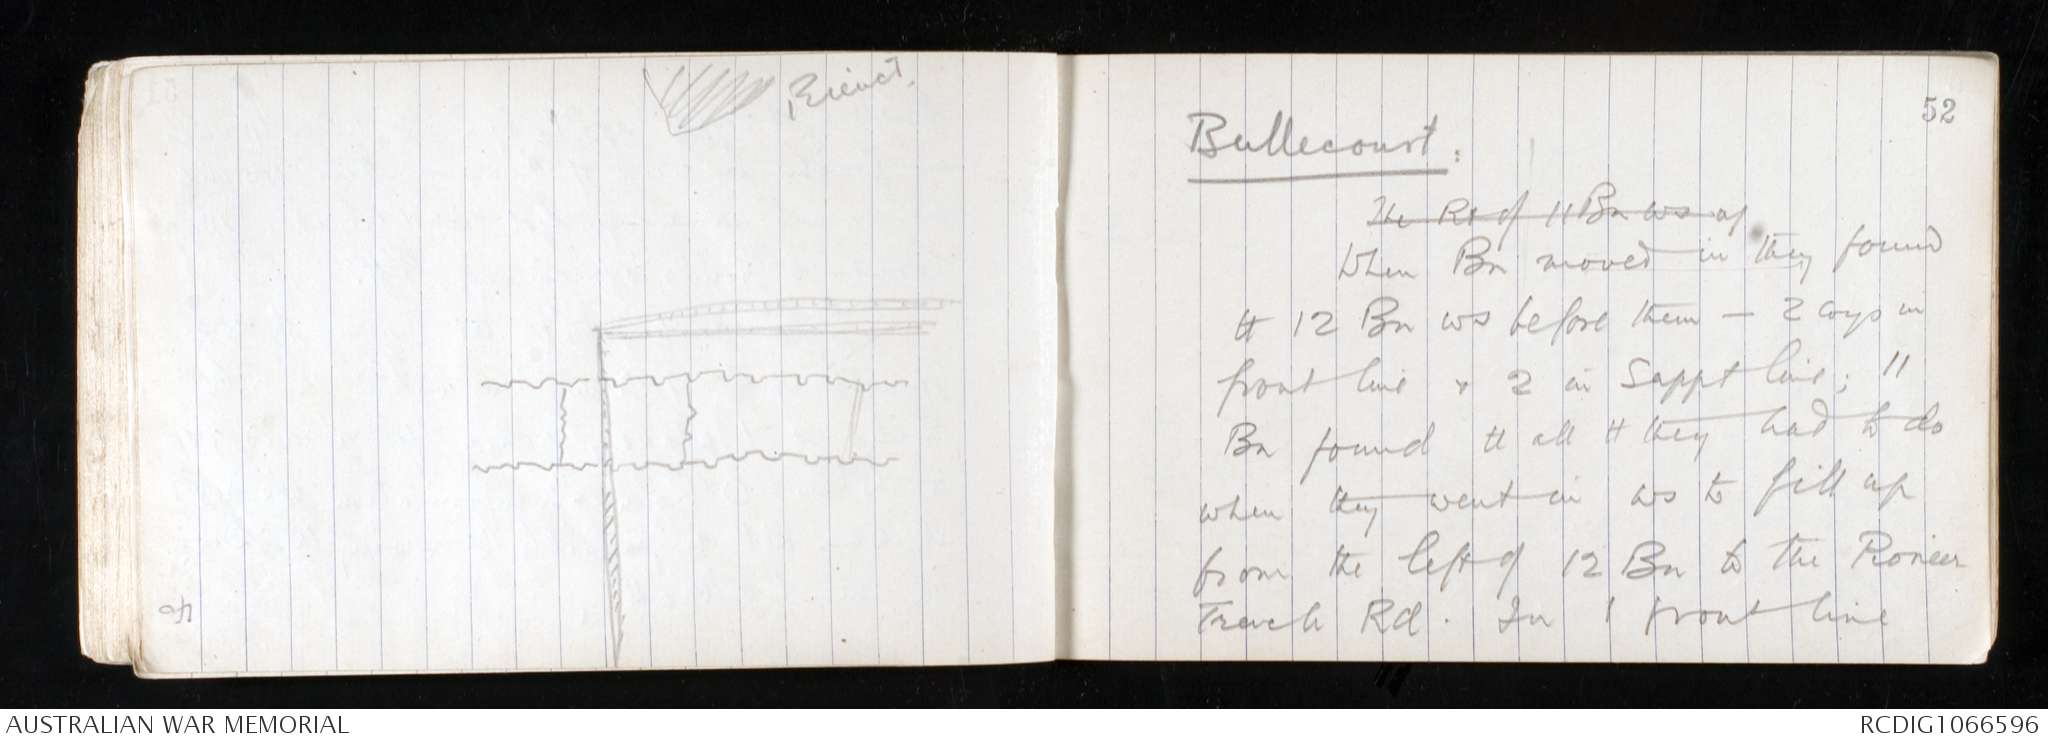 Riencourt.
40
52
Bullecourt:
The Rt of 11 Bn ws of
When Bn moved in they found
tt 12 Bn ws before them - 2 coys in
front line & 2 in Suppt line; 11
Bn found tt all tt they had to do
when they went in ws to fill up
from the left of 12 Bn to the Pioneer
Trench Rd. In 1 front line
AUSTRALIAN WAR MEMORIAL
RCDIG1066596